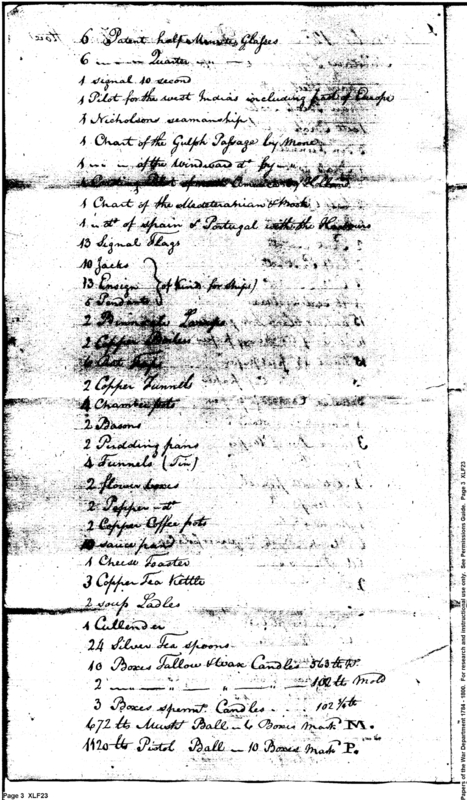 6 Patent half Minutes Glasses
6 " " Quarter " "
1 signal 10 second
1 Pilot for the west Indias including part of Europe
1 Nicholsons seamanship
1 Chart of the Gulph Passage by Mone
1 " " of the Windward do by "
1 Coasting Pilot of America by
1 Chart of the Mediteranian &
1 " do of Spain & Portugal with the Harbours
13 Signal Flags
10 Jacks
13 Ensign } (of kinds for ships)
5 Pendants
2 Binnacle Lamps
2 Copper Boilers
6
2 Copper Funnels
4 Chamber pots
2 Basons
2 Pudding pans
4 Funnels (Tin)
2 flower boxes
2 Pepper do
2 Copper Coffee pots
10 sauce pans
1 Cheese Toaster
3 Copper Tea Kettle
2 soup Ladles
1 Cullender
24 Silver Tea spoons
10 Boxes Tallow & wax Candles 563 lb wt.
2 " " " " 102 lb Mold
3 Boxes spermt. Candles 102 ½ lb
672 lb Muskt Ball in 6 Boxes mark M.
1120 lb Pistol Ball in 10 Boxes mark P.
Page 3 XLF23
Papers of the War Department 1784 - 1800. For research and instructional use only. See Permissions Guide. Page 3 XLF23